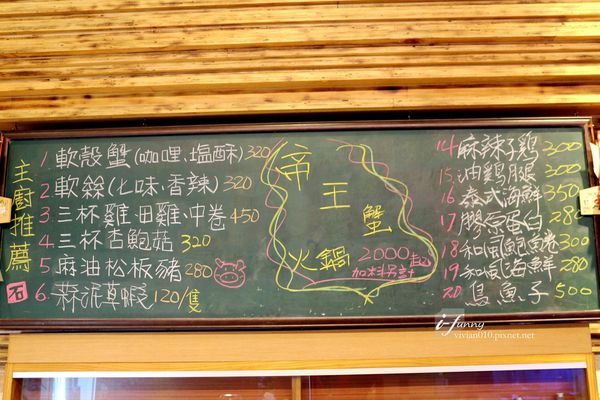 主廚推薦
1. 軟殼蟹(咖哩、塩酥) 320
2. 軟絲(七味、香辣) 320
3. 三杯雞、田雞、中卷 450
4. 三杯杏鮑菇 320
5. 麻油松板豬 280
6. 蒜泥草蝦 120/隻
帝王蟹
火鍋 2000起
加料另計
14 麻辣子鷄 300
15 油鷄腿 300
16 泰式海鮮 350
17 膠原蛋白 280
18 和風鮑魚卷 300
19 和風海鮮 280
20 烏魚子 500
i-funny
vivian010.pixnet.net